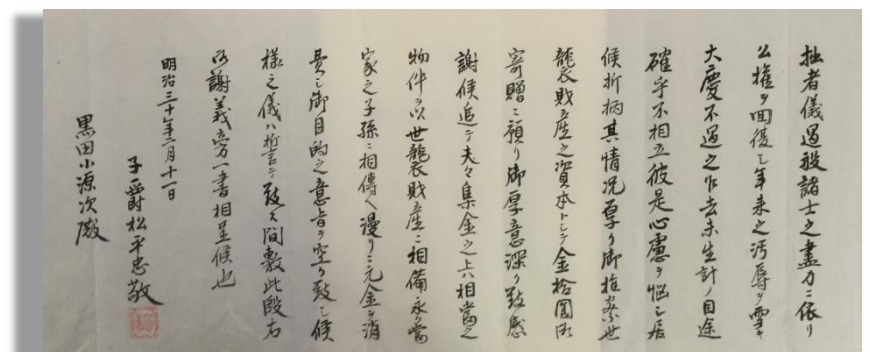 拙者儀過般諸士之盡力ニ依リ
公権ヲ回復シ年来之汚辱ヲ雪キ
大慶不過之乍去未生計ノ目途
確乎不相立彼是心慮ヲ悩シ居
候折柄其情況厚ク御推察世
襲財産之資本トシテ金拾圓御
寄贈ニ預リ御厚意深ク致感
謝候追テ夫々集金之上ハ相當之
物件ヲ以世襲財産ニ相備永ク當
家之子孫ニ相傳ヘ漫リニ元金ヲ消
費シ御目的之意旨ヲ空ク致シ候
様之儀ハ誓言テ致ス間敷此段右
御謝義旁一書相呈候也
明治三十年二月十一日
子爵松平忠敬
黒田小源次殿